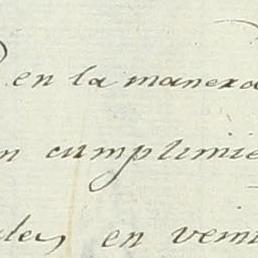 en la manera
n cumplimie
des en vein